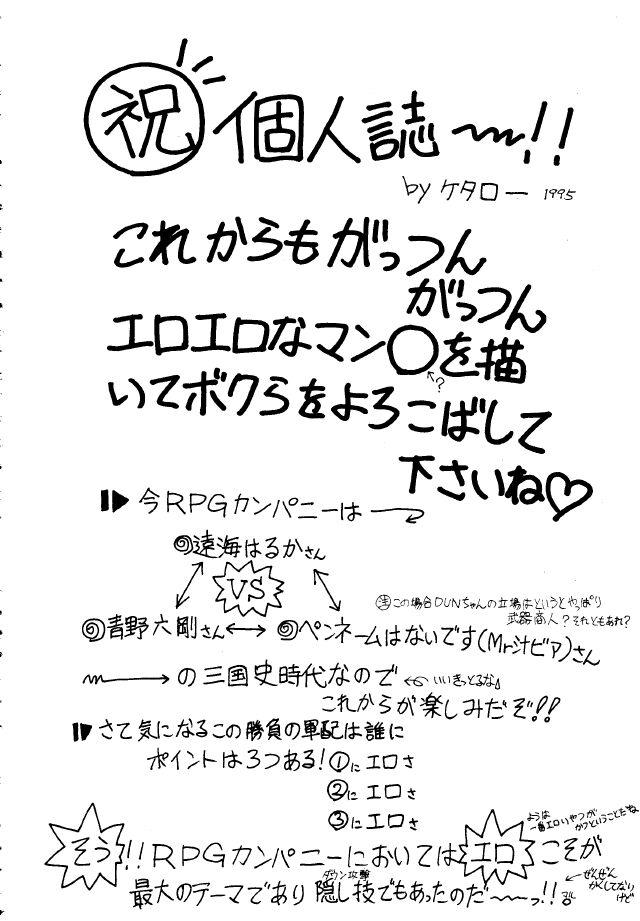 祝 個人誌〜!!
by ケタロー 1995
これからもがっつん
がっつん
エロエロなマン〇を描
?
いてボクらをよろこばして
下さいね♡
今RPGカンパニーは
遠海はるかさん
VS
青野六剛さん ↔ ペンネームはないです(Mr汁ビア)さん
注この場合DUNちゃんの立場はというとやっぱり
武器商人?それともあれ?
→の三国史時代なので
いいきっとるな』
これからが楽しみだぞ!!
さて気になるこの勝負の軍配は誰に
ポイントは3つある!①にエロさ
②にエロさ
③にエロさ
ようは
一番エロいやつが
かつということだね
そう!!RPGカンパニーにおいてはエロこそが
最大のテーマであり隠し技でもあったのだ〜っ!!
ダウン攻撃
ぜんぜん
かくしてない
けど